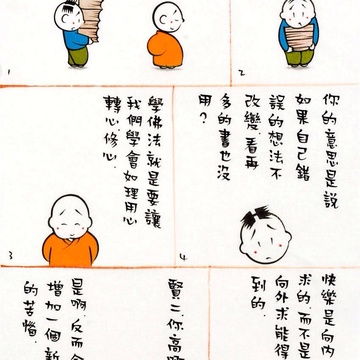 1
2
學佛法就是要讓
我們學會如理用心
轉心修心.
3
你的意思是說
如果自己錯
誤的想法不
改變,看再
多的書也沒
用?
4
賢二,你高
是啊,反而
增加一個新
的苦惱
快樂是向內
求的,而不是
向外求能得
到的.